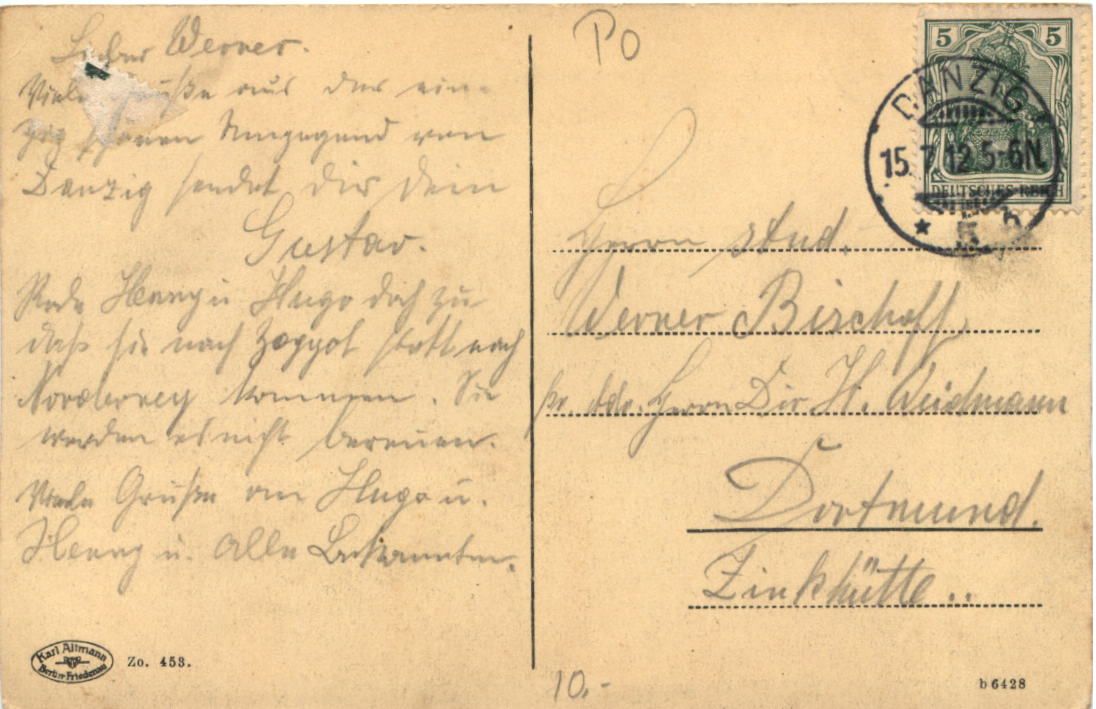 Lieber Werner.
Viele Grüße aus der ein-
zig schönen Umgegend von
Danzig sendet Dir Dein
Gustav.
Rede Henny u Hugo doch zu
daß sie nach Zoppot statt nach
Norderney kommen. Sie
werden es nicht bereuen.
Viele Grüße an Hugo u.
Henny u. Alle Bekannten.
Karl Altmann
Berlin-Friedenau
Zo. 453.
PO
5 5
DEUTSCHES REICH
DANZIG
15.7.12.5-6N.
* 5 b
Herrn stud.
Werner Bischoff,
pr. Adr. Herrn Dir. H. Weidmann
Dortmund.
Zinkhütte..
10.-
b 6428